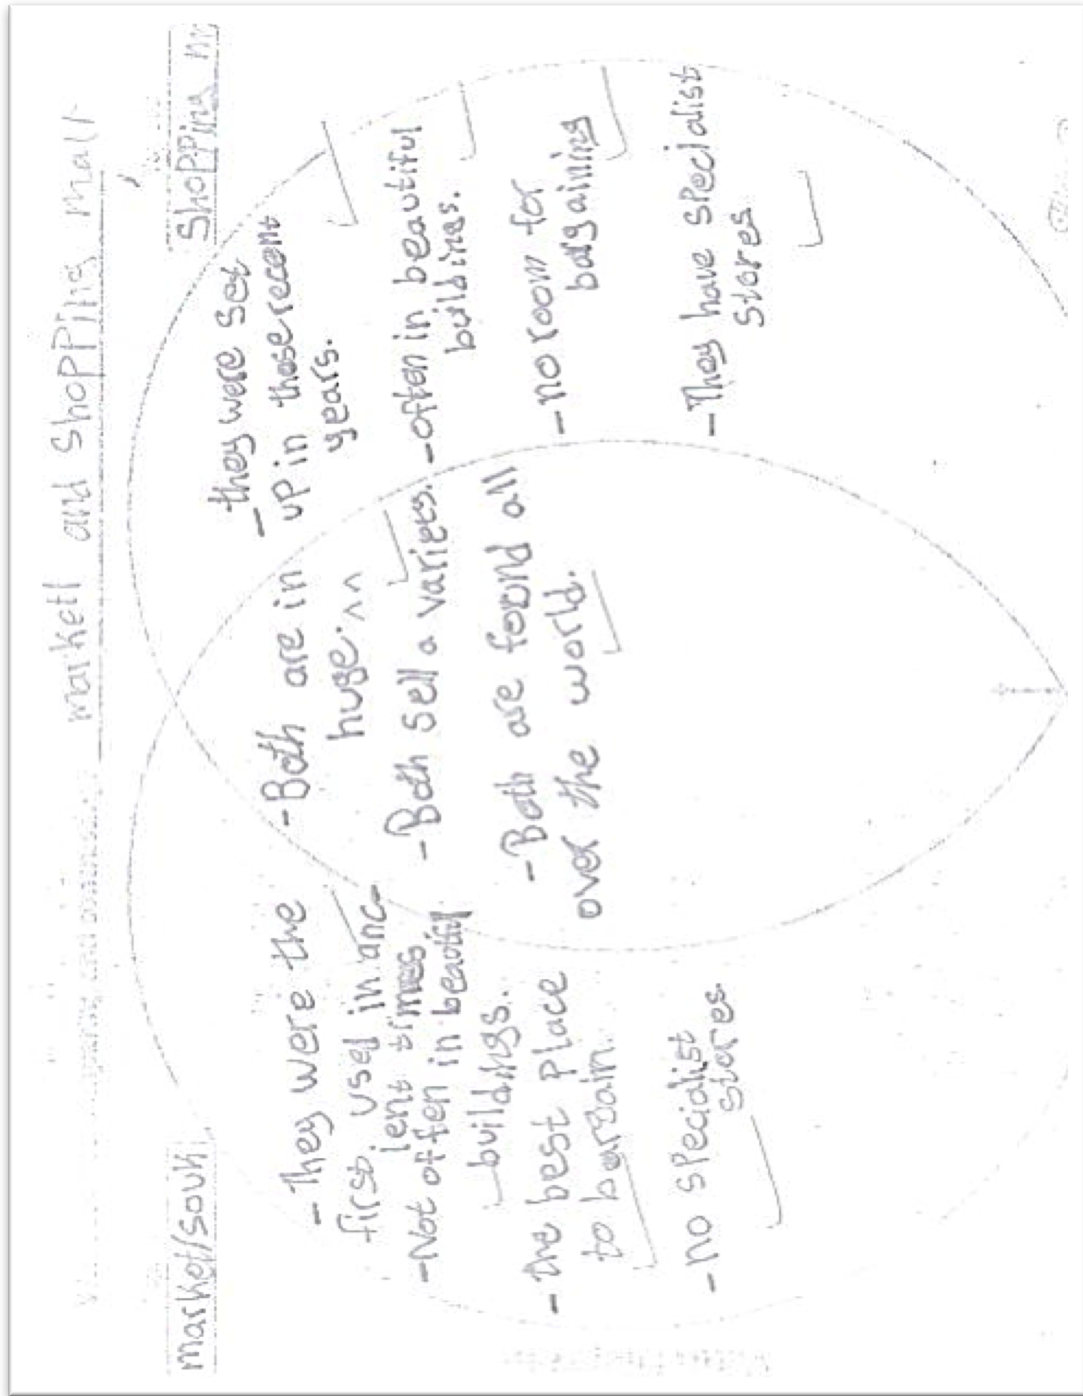 market and shopping mall
market/souk
shopping
- They were the
first. used in anc-
ient times
- Not often in beautiful
buildings.
- the best place
to bargain.
- no specialist
stores.
- Both are in
huge. ^^
- Both sell a variety.
- Both are found all
over the world.
- they were set
up in these recent
years.
- often in beautiful
buildings.
- no room for
bargaining
- They have specialist
stores